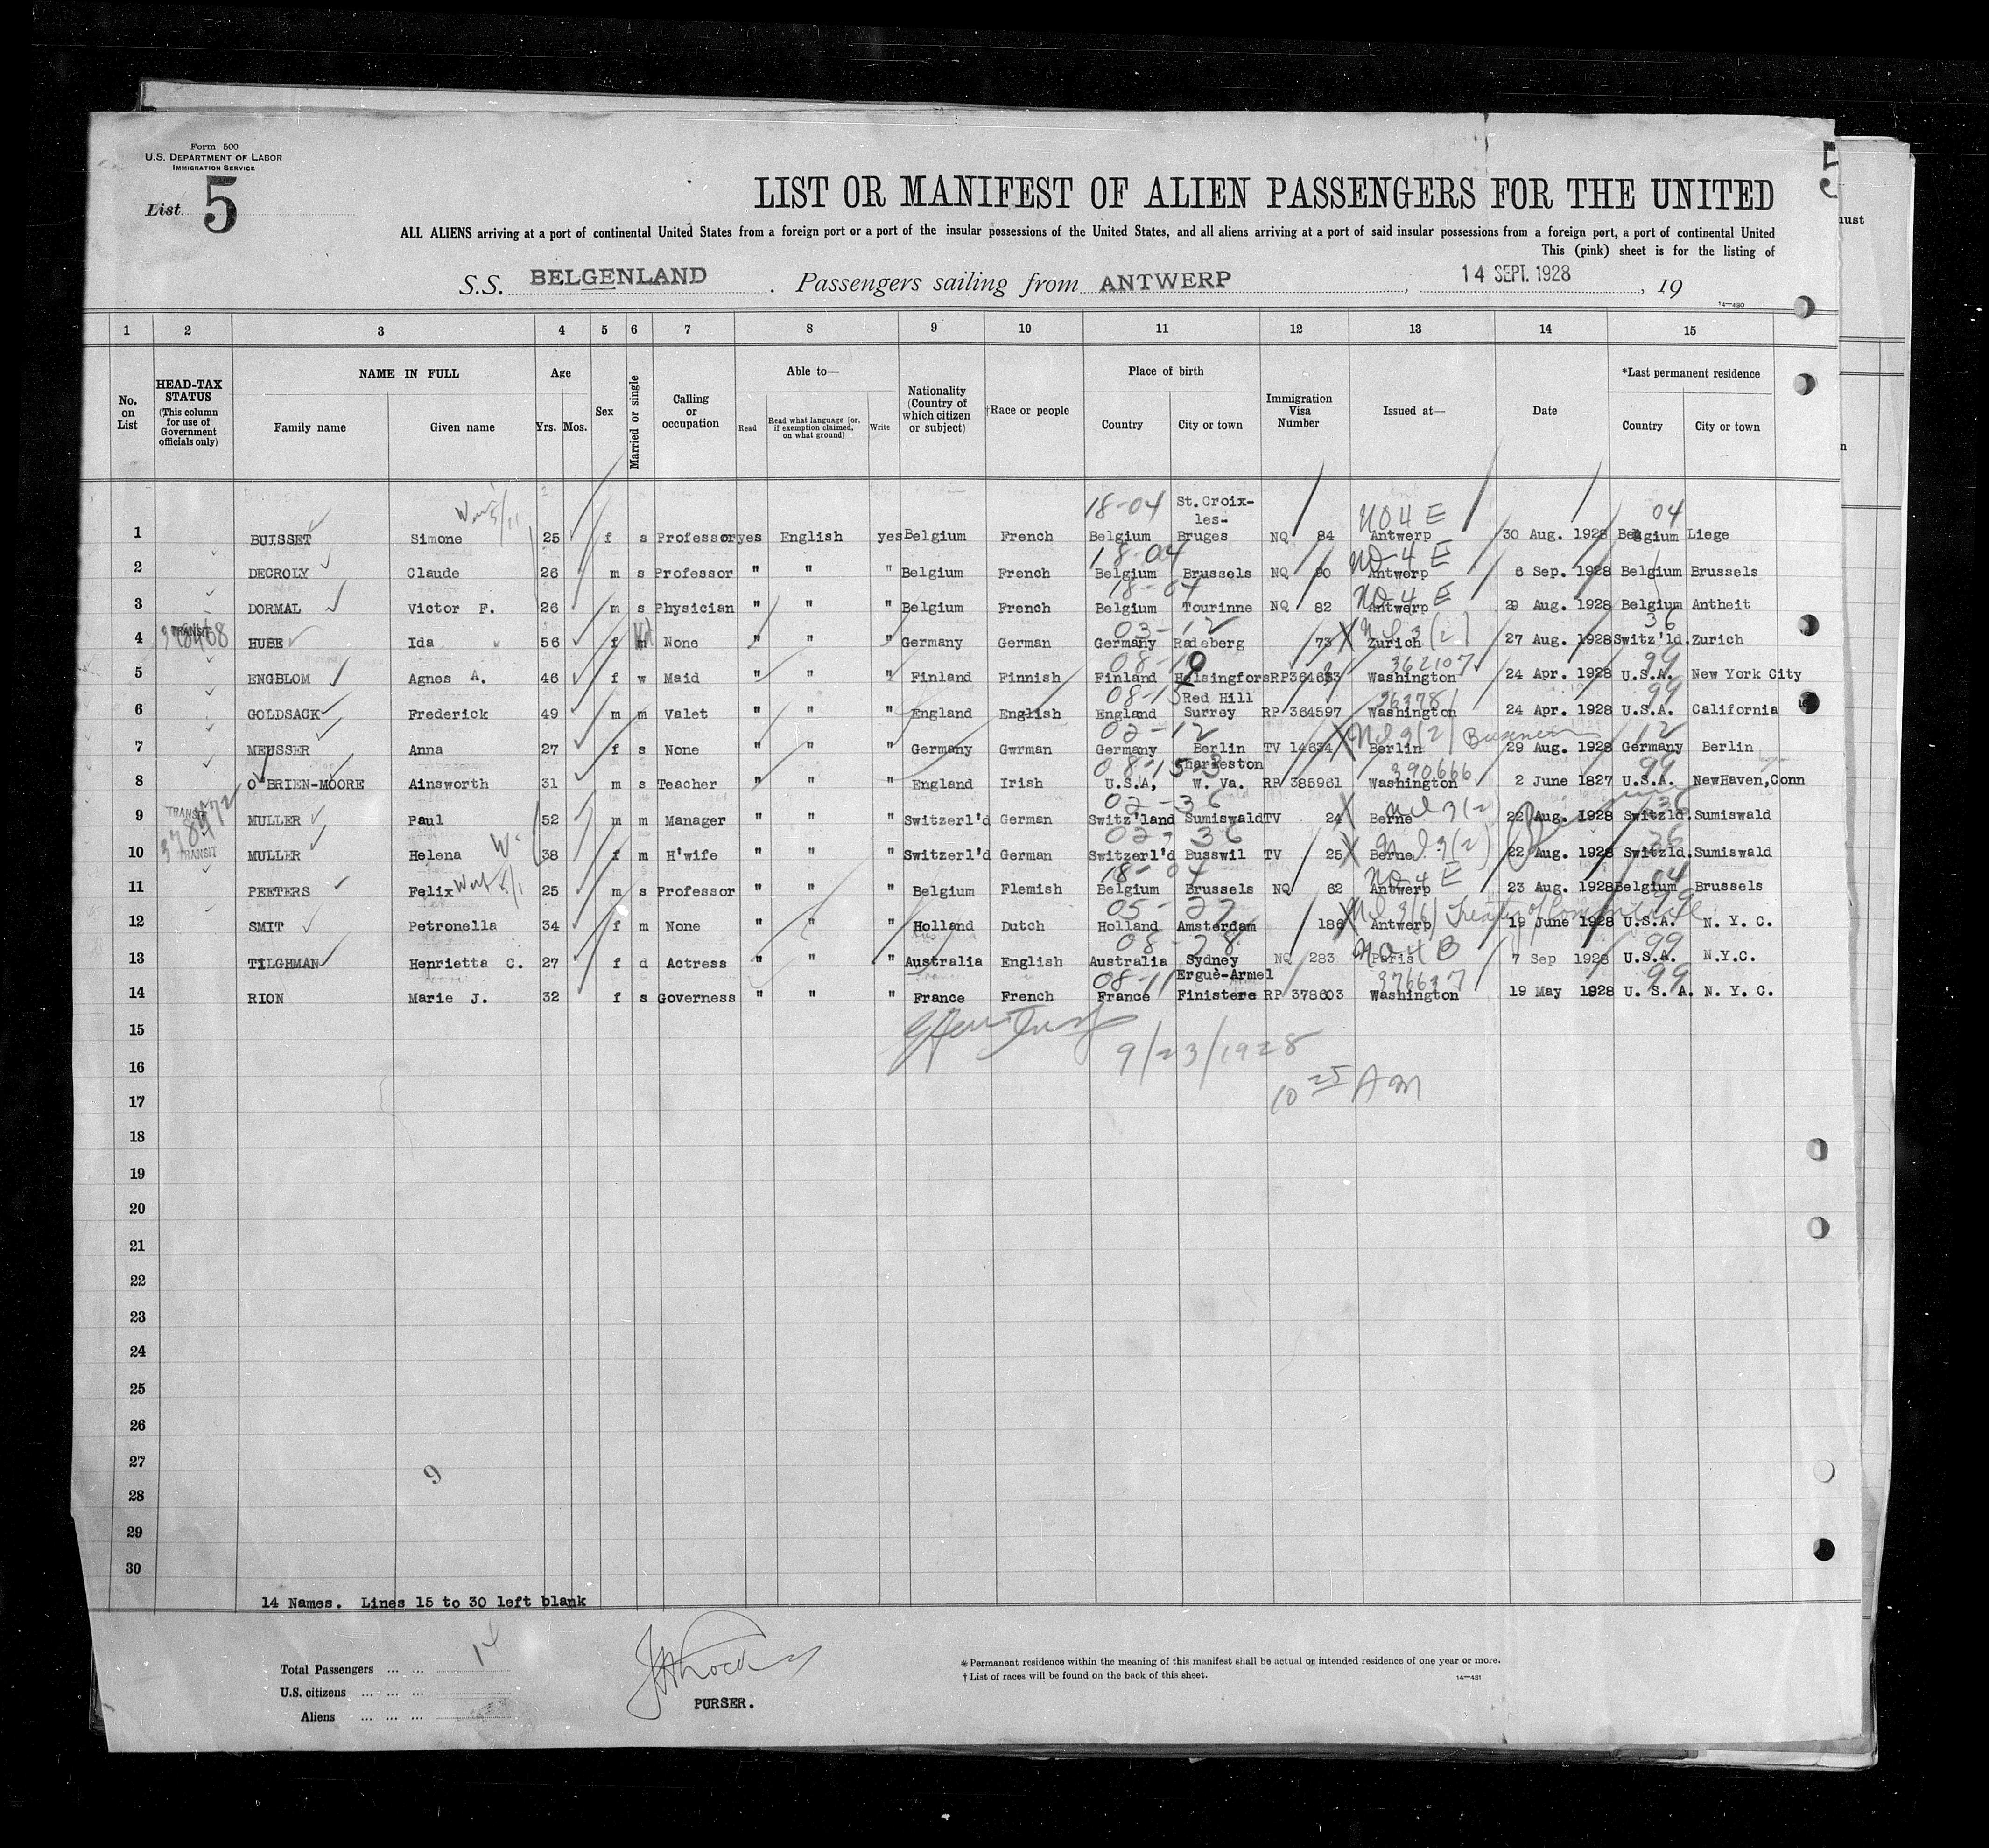 Form 500
U.S. DEPARTMENT OF LABOR
IMMIGRATION SERVICE
List 5
LIST OR MANIFEST OF ALIEN PASSENGERS FOR THE UNITED
ALL ALIENS arriving at a port of continental United States from a foreign port or a port of the insular possessions of the United States, and all aliens arriving at a port of said insular possessions from a foreign port, a port of continental United
This (pink) sheet is for the listing of
S.S. BELGENLAND . Passengers sailing from ANTWERP , 14 SEPT. 1928 , 19
14—480
1 2 3 4 5 6 7 8 9 10 11 12 13 14 15
No. on List
HEAD-TAX STATUS (This column for use of Government officials only)
NAME IN FULL Family name Given name
Age Yrs. Mos.
Sex
Married or single
Calling or occupation
Able to— Read Read what language [or, if exemption claimed, on what ground] Write
Nationality (Country of which citizen or subject)
†Race or people
Place of birth Country City or town
Immigration Visa Number
Issued at—
Date
*Last permanent residence Country City or town
18-04 St.Croix-les- NO4E 04
1 BUISSET Simone 25 f s Professor yes English yes Belgium French Belgium Bruges NQ 84 Antwerp 30 Aug. 1928 Belgium Liege
18-04 NO-4E
2 DECROLY Claude 26 m s Professor " " " Belgium French Belgium Brussels NQ 90 Antwerp 6 Sep. 1928 Belgium Brussels
18-04 NO-4E
3 DORMAL Victor F. 26 m s Physician " " " Belgium French Belgium Tourinne NQ 82 Antwerp 29 Aug. 1928 Belgium Antheit
TRANSIT 03-12 3(2) 36
4 HUBE Ida 56 f m None " " " Germany German Germany Radeberg 73 Zurich 27 Aug. 1928 Switz'ld. Zurich
362107 99
5 ENGBLOM Agnes A. 46 f w Maid " " " Finland Finnish Finland Helsingfors RP 364653 Washington 24 Apr. 1928 U.S.A. New York City
08-15 Red Hill 99
6 GOLDSACK Frederick 49 m m Valet " " " England English England Surrey RP 364597 Washington 24 Apr. 1928 U.S.A. California
02-12 3(2) 12
7 MEUSSER Anna 27 f s None " " " Germany Gwrman Germany Berlin TV 14634 Berlin 29 Aug. 1928 Germany Berlin
Charleston 390666 99
8 O'BRIEN-MOORE Ainsworth 31 m s Teacher " " " England Irish U.S.A, W. Va. RP 385961 Washington 2 June 1827 U.S.A. NewHaven,Conn
TRANSIT 02-36 3(2) 36
9 MULLER Paul 52 m m Manager " " " Switzerl'd German Switz'land Sumiswald TV 24 Berne 22 Aug. 1928 Switzld. Sumiswald
TRANSIT 02-36 3(2) 36
10 MULLER Helena 38 f m H'wife " " " Switzerl'd German Switzerl'd Busswil TV 25 Berne 22 Aug. 1928 Switzld. Sumiswald
18-04 NO4E 04
11 PEETERS Felix 25 m s Professor " " " Belgium Flemish Belgium Brussels NQ 62 Antwerp 23 Aug. 1928 Belgium Brussels
05-27 3(6) Treaty of Commerce 99
12 SMIT Petronella 34 f m None " " " Holland Dutch Holland Amsterdam 186 Antwerp 19 June 1928 U.S.A. N. Y. C.
08-28 NO4B 99
13 TILGHMAN Henrietta C. 27 f d Actress " " " Australia English Australia Sydney NQ 283 Paris 7 Sep 1928 U.S.A. N.Y.C.
08-11 Ergué-Armel 376637 99
14 RION Marie J. 32 f s Governess " " " France French France Finistere RP 378603 Washington 19 May 1928 U. S. A. N. Y. C.
15
9/23/1928
16
10 25 AM
17
18
19
20
21
22
23
24
25
26
27
9
28
29
30
14 Names. Lines 15 to 30 left blank
Total Passengers ... ... 14
U.S. citizens ... ... ...
Aliens ... ... ...
PURSER.
*Permanent residence within the meaning of this manifest shall be actual or intended residence of one year or more.
†List of races will be found on the back of this sheet.
14—481